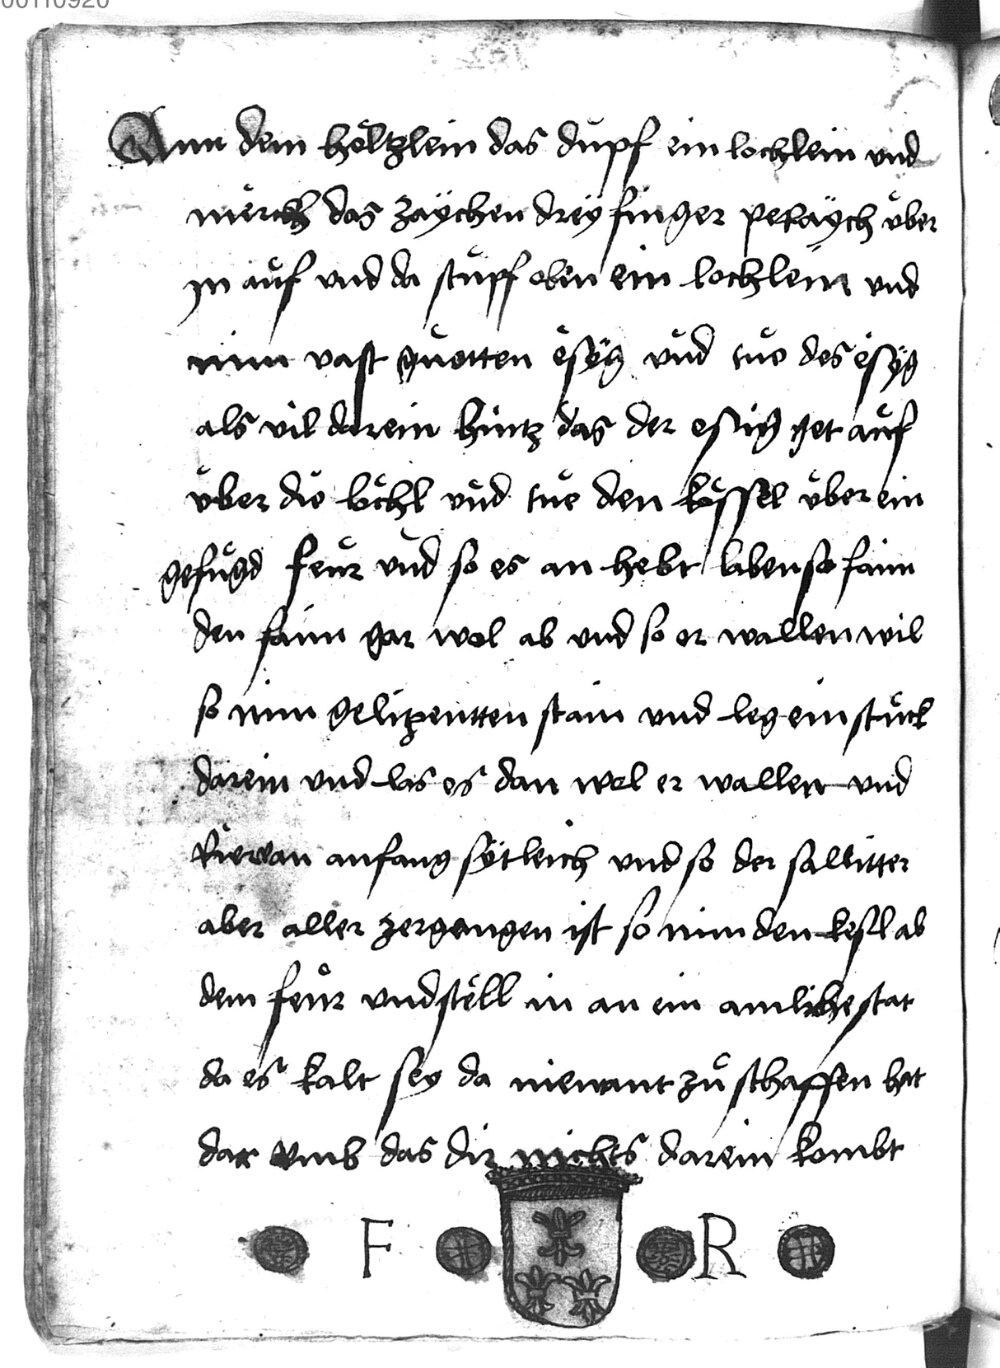 00110920
Ann dem höltzlein das dupf ein lochlein vnd
merckh das zaÿchen dreÿ finger peraÿch über
jn auf vnd da stupf oben ein lochlein vnd
nim vast guetten esÿg vnd tue des esÿg
als vil darein hintz das der essig get auf
über die löchl vnd tue den kessel über ein
gefugd feur vnd so es an hebt so faim
den faim gar wol ab vnd so er wallen wil
so nim stain vnd leg ein stuck
darein vnd las es dan wol er wallen vnd
anfang sÿtleich vnd so der sallitter
aber aller zergangen ist so nim den kesl ab
dem feur vnd stell in an ein stat
da es kalt seÿ da niemant zu schaffen hat
dar vmb das dir nichts darein kombt
F R